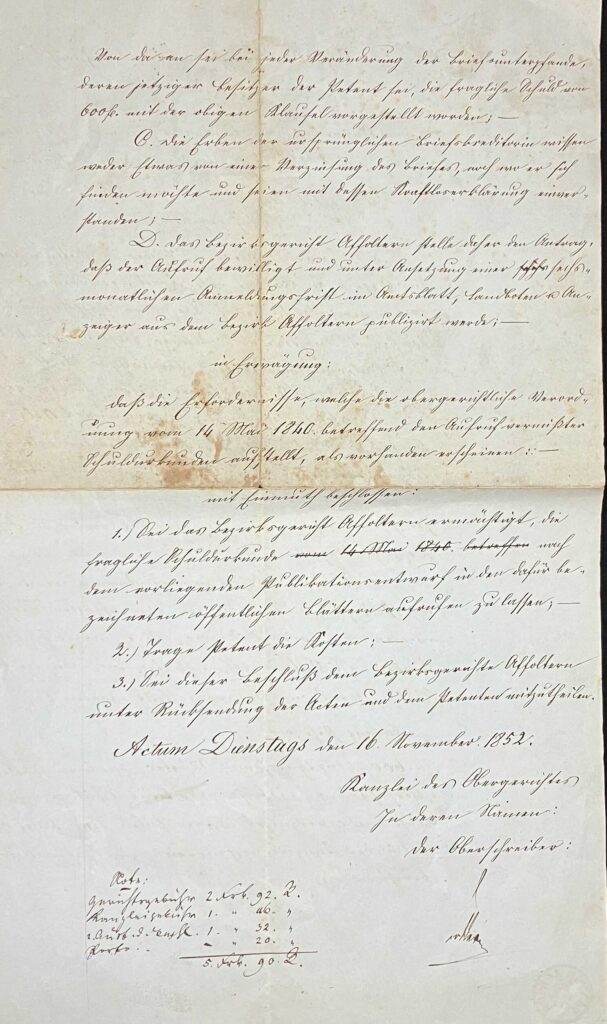 Von da an sei bei jeder Veränderung der Briefsunterpfande,
deren jetziger Besitzer der Petent sei, die fragliche Schuld von
600 fl. mit der obigen Klausel vorgestellt worden; —
C. die Erben der ursprünglichen Briefskreditorin wissen
weder Etwas von einer Verzinsung des Briefes, noch wo er sich
finden möchte und seien mit dessen Kraftloserklärung einver-
standen; —
D. das Bezirksgericht Affoltern stelle daher den Antrag,
daß der Aufruf bewilligt und unter Ansetzung einer sechs-
monatlichen Anmeldungsfrist im Amtsblatt, Landboten u An-
zeiger aus dem Bezirk Affoltern publizirt werde; —
in Erwägung:
daß die Erfordernisse, welche die obergerichtliche Verord-
nung vom 14 Mai 1840. betreffend den Aufruf vermißter
Schuldurkunden aufstellt, als vorhanden erscheinen: —
mit Einmuth beschlossen:
1.) Sei das Bezirksgericht Affoltern ermächtigt, die
fragliche Schuldurkunde vom 14 Mai 1840. betreffen nach
dem vorliegenden Publikationsentwurf in den dafür be-
zeichneten öffentlichen Blättern aufrufen zu lassen; —
2.) Trage Petent die Kosten; —
3.) Sei dieser Beschluß dem Bezirksgerichte Affoltern
unter Rücksendung der Acten und dem Petenten mitzutheilen.
Actum Dienstags den 16. November 1852.
Kanzlei des Obergerichtes
In deren Namen:
der Oberschreiber:
Note:
Gerichtsgebühr 2. Frk. 92. R.
Kanzleigebühr 1. " 46. "
1. " 32. "
Porto: - " 20. "
5. Frk. 90. R.